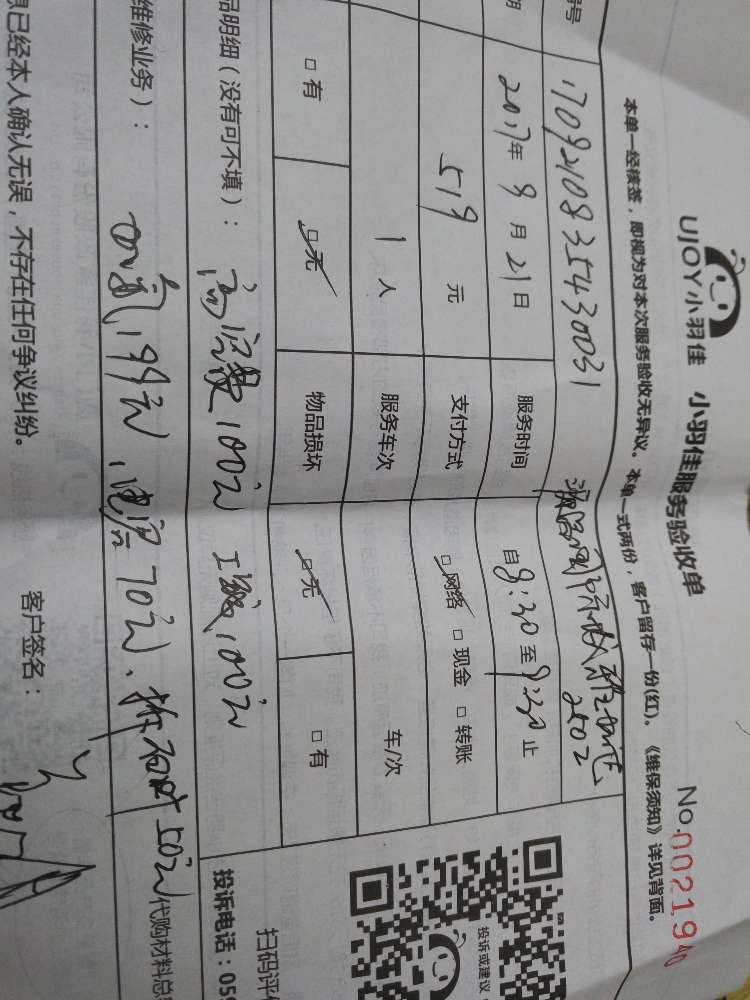 UJOY小羽佳 小羽佳服务验收单
No.0021940
本单一经核签，即视为对本次服务验收无异议。本单一式两份，客户留存一份(红)。《维保须知》详见背面。
号 1709210835430031
期 2017年9月21日 服务时间 自8:30至9:30止
519元 支付方式 网络 现金 转账
1人 服务车次 车/次
有 无 物品损坏 无 有
品明细（没有可不填）： 高空费100元 工减100元
维修业务）： 加氟199元、电容70元、拆 50元
代购材料总
息已经本人确认无误，不存在任何争议纠纷。 客户签名：
投诉或建议
扫码评
投诉电话：059